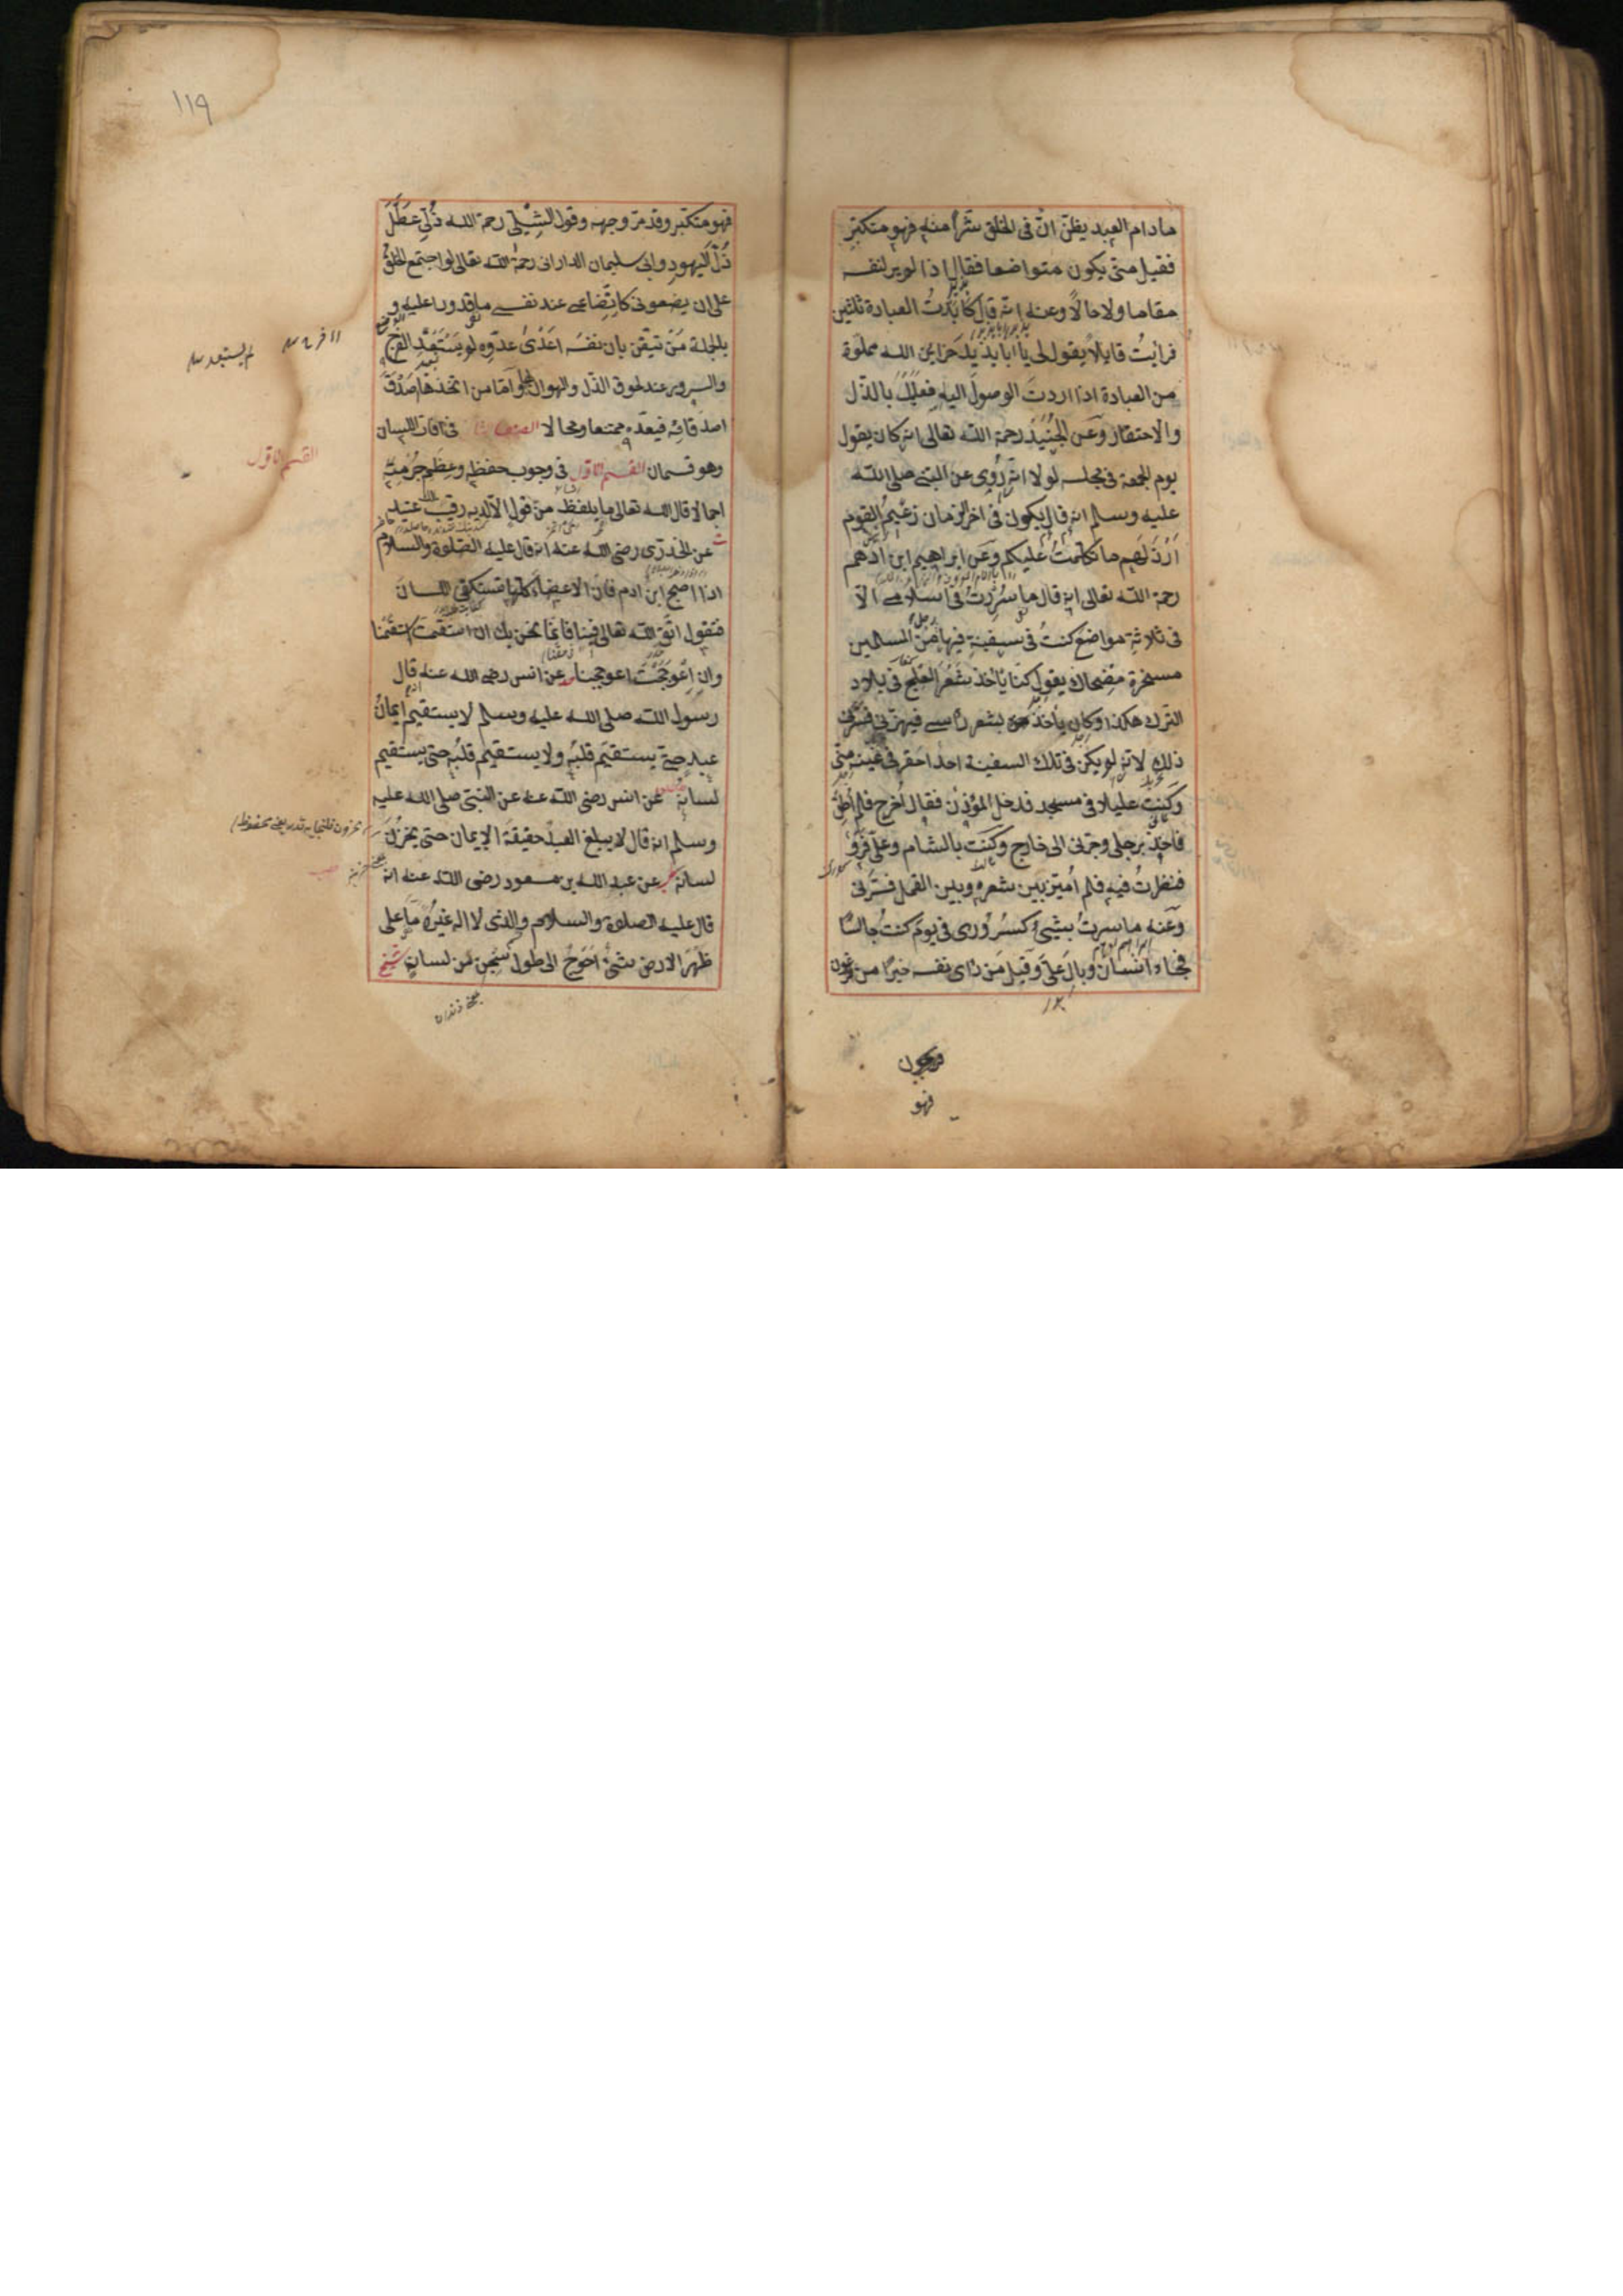 مادام العبد يظنّ انّ فى الخلق شرّا منه فهو متكبّر
فقيل متى يكون متواضعا فقال اذا لم ير لنفسه
مقاما ولا حالًا وعنه انّه قال كابَدتُ العبادة ثلثين
فرايتُ قايلًا يقول لى يا ابا يزيد خزاين الله مملوّة
من العبادة اذا اردتَ الوصول اليه فعليك بالذّل
والاحتقار وعن الجُنَيد رحمة الله تعالى انه كان يقول
يوم الجمعة فى مجلسه لولا انّه رُوِى عن النبى صلى الله
عليه وسلم انه قال يكون فى اخر الزمان زعيمُ القوم
اَرْذَلَهم ما تكلّمتُ عليكم وعن ابراهيم ابن ادهم
رحمة الله تعالى انه قال ما سُرِرتُ فى اسلامى الّا
فى ثلاثة مواضع كنتُ فى سفينة فيها من المسلمين
مسخرة مضحاك يقول كنّا ناخذ بشَعْر العِلْج فى بلاد
الترك هكذا وكان ياخذ بشعر راسى فيهزّنى فسَرّنى
ذلك لانه لم يكن فى تلك السفينة احد احقر فى عينه منّى
وكنتُ عليلا فى مسجد فدخل المؤذّن فقال اُخرج فلم اُطِق
فاخذ برجلى وجرّنى الى خارج وكنت بالشام وعلىّ فَرْوٌ
فنظرتُ فيه فلم اُميّز بين شعره وبين القمل فسرّنى
وعنه ما سررتُ بشىء كسُرُورى فى يوم كنت جالسًا
فجاء انسان وبال علىّ وقيل من راى نفسه خيرًا من فرعون
فرعون
فهو
١١٩
فهو متكبّر وقد مرّ وجهه وقول الشِبْلى رحمة الله ذُلّى عَطَّلَ
ذُلّ اليهود وابى سليمان الدارانى رحمة الله تعالى لو اجتمع الخلقُ
على ان يضعونى كاتّضاعى عند نفسى ما قدروا عليه و
بالجملة مَنْ تيقّن بان نفسَه اَعْدَى عدوّه لم يستبعد الفرح
والسرور عند لحوق الذّل والهوان لها وامّا من اتخذها صَدَقَ
اصدقائه فيعدّه ممتنعا ومحالا الصنف الثا فى افات اللسان
وهو قسمان القسم الاوّل فى وجوب حفظه وعِظَمِ جُرْمِه
اجمالا قال الله تعالى ما يلفظ من قول الّا لديه رقيب عتيد
ت عن الخدرى رضى الله عنه انه قال عليه الصلوة والسلام
اذا اصبح ابن ادم فان الاعضاء كلها تستكفى اللسانَ
فتقول اتّق الله تعالى فينا فانّما نحن بك ان استقمتَ استقمنا
وانِ اعْوَجَجْتَ اعوججنا حد عن انس رضى الله عنه قال
رسول الله صلى الله عليه وسلم لا يستقيم ايمانُ
عبد حتى يستقيم قلبُه ولا يستقيم قلبُه حتى يستقيم
لسانه عن انس رضى الله عنه عن النبى صلى الله عليه
وسلم انه قال لا يبلغ العبدُ حقيقةَ الايمان حتى يخزُن
لسانه عن عبد الله بن مسعود رضى الله عنه انه
قال عليه الصلوة والسلام والذى لا اله غيرُه ما على
ظَهْرِ الارض شىءٌ احوجُ الى طول سَجْنٍ من لسان شيخ
الفرح
لم يستبعد
القسم الاوّل